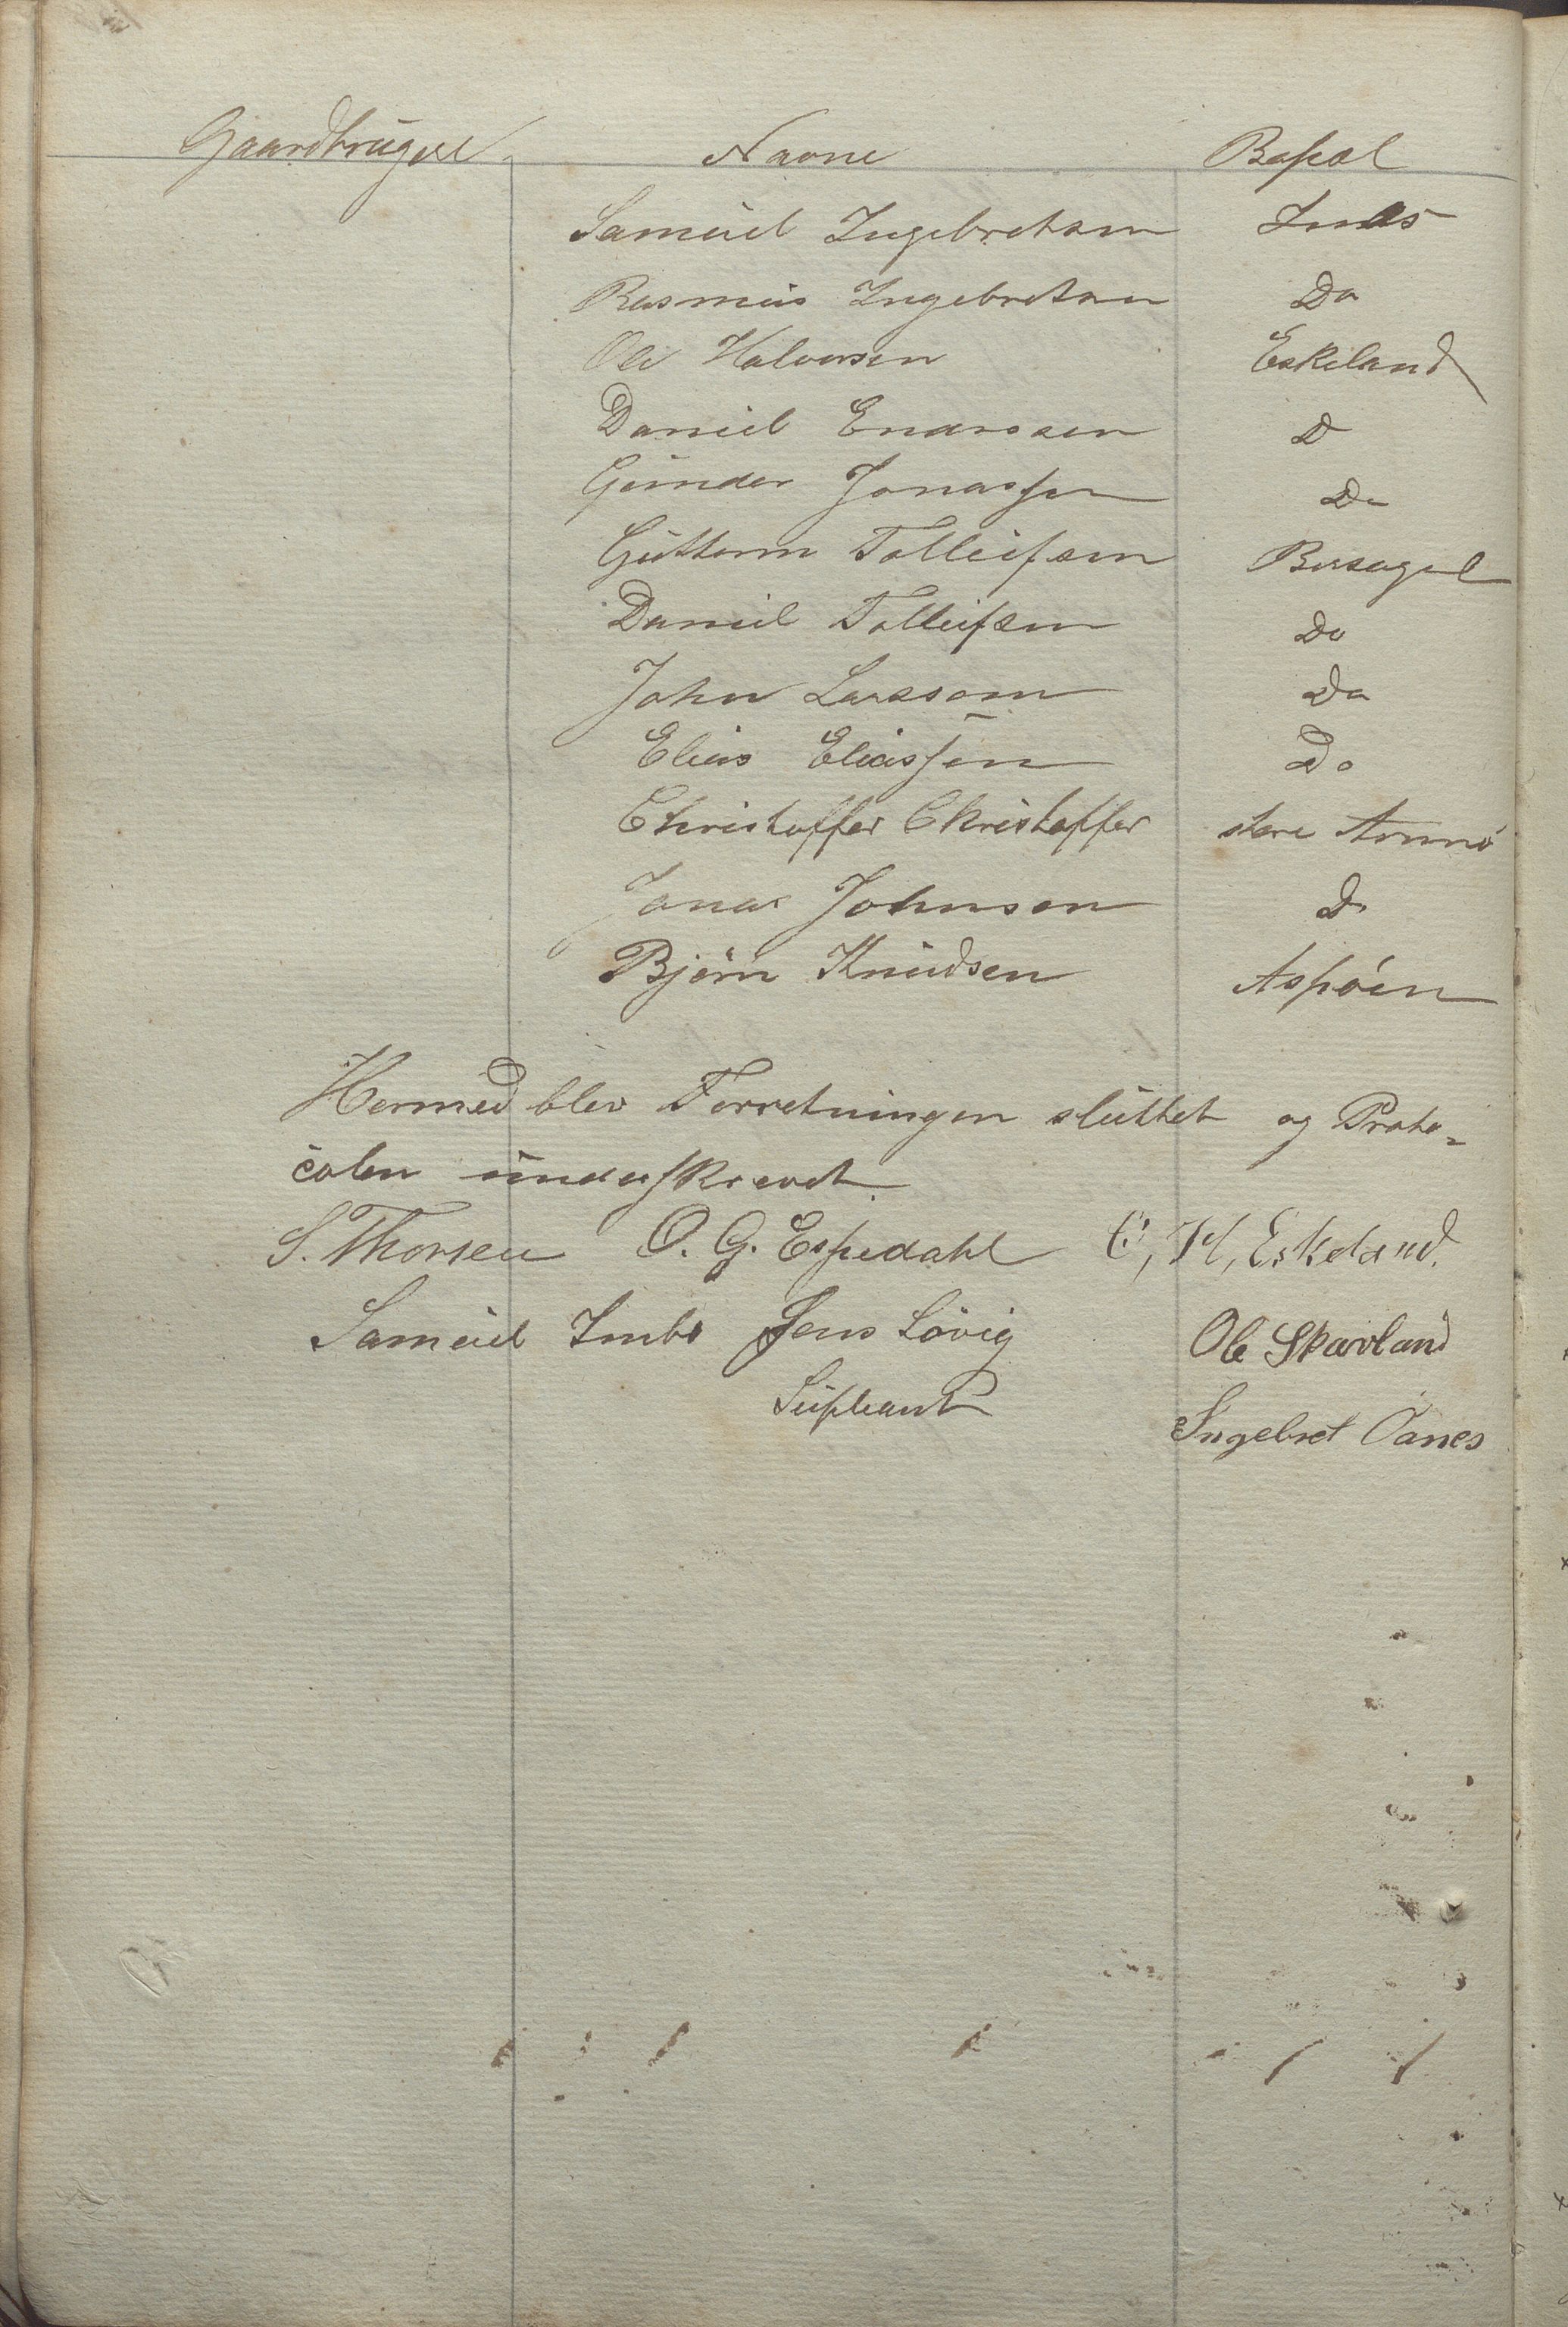 Gaardbrugere Navne Bopæl
Samuel Ingebretsen Imbs
Rasmus Ingebretsen Do
Ole Halvorsen Eskeland
Daniel Enarssen D
Gunder Jonassen Do
Guttorm Tolleifsen Bersagel
Daniel Tolleifsen Do
John Larssen Do
Elias Eliassen Do
Christoffer Christoffer store
Jonas Johnson D.
Bjørn Knudsen Aspøen
Hermed blev Forretningen sluttet og Proto=
colen underskrevet
S. Thorsen O. G. Espedahl O, H, Eskeland.
Samuel Imbs Jens Løvig Ole Skavland
Supleant Ingebret Oanes